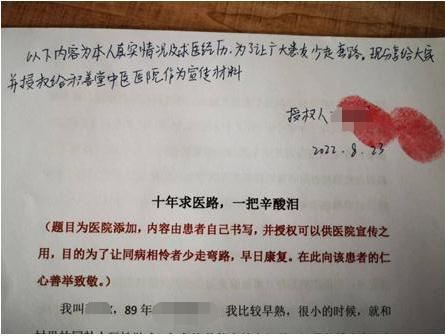 以下内容为本人真实情况及求医经历.为了让广大患友少走弯路.现分享给大家
并授权给示善堂中医医院作为宣传材料
授权人
2022.8.23
十年求医路，一把辛酸泪
（题目为医院添加，内容由患者自己书写，并授权可以供医院宣传之
用，目的为了让同病相怜者少走弯路，早日康复。在此向该患者的仁
心善举致敬。）
我叫，89年 我比较早熟，很小的时候，就和